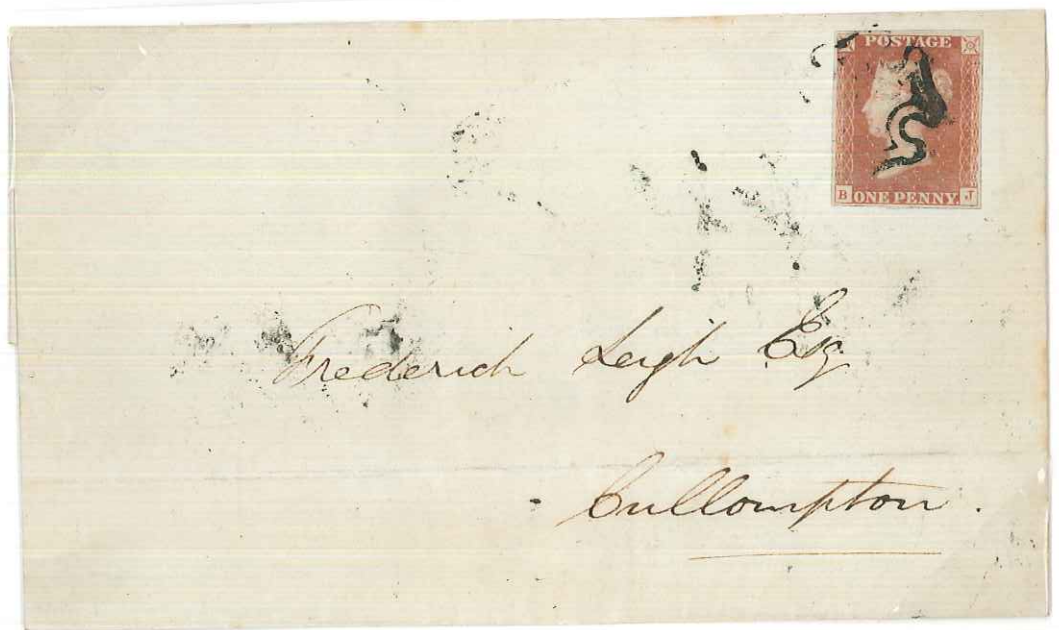 POSTAGE
B ONE PENNY. J
Frederick Leigh Esq
Cullompton.